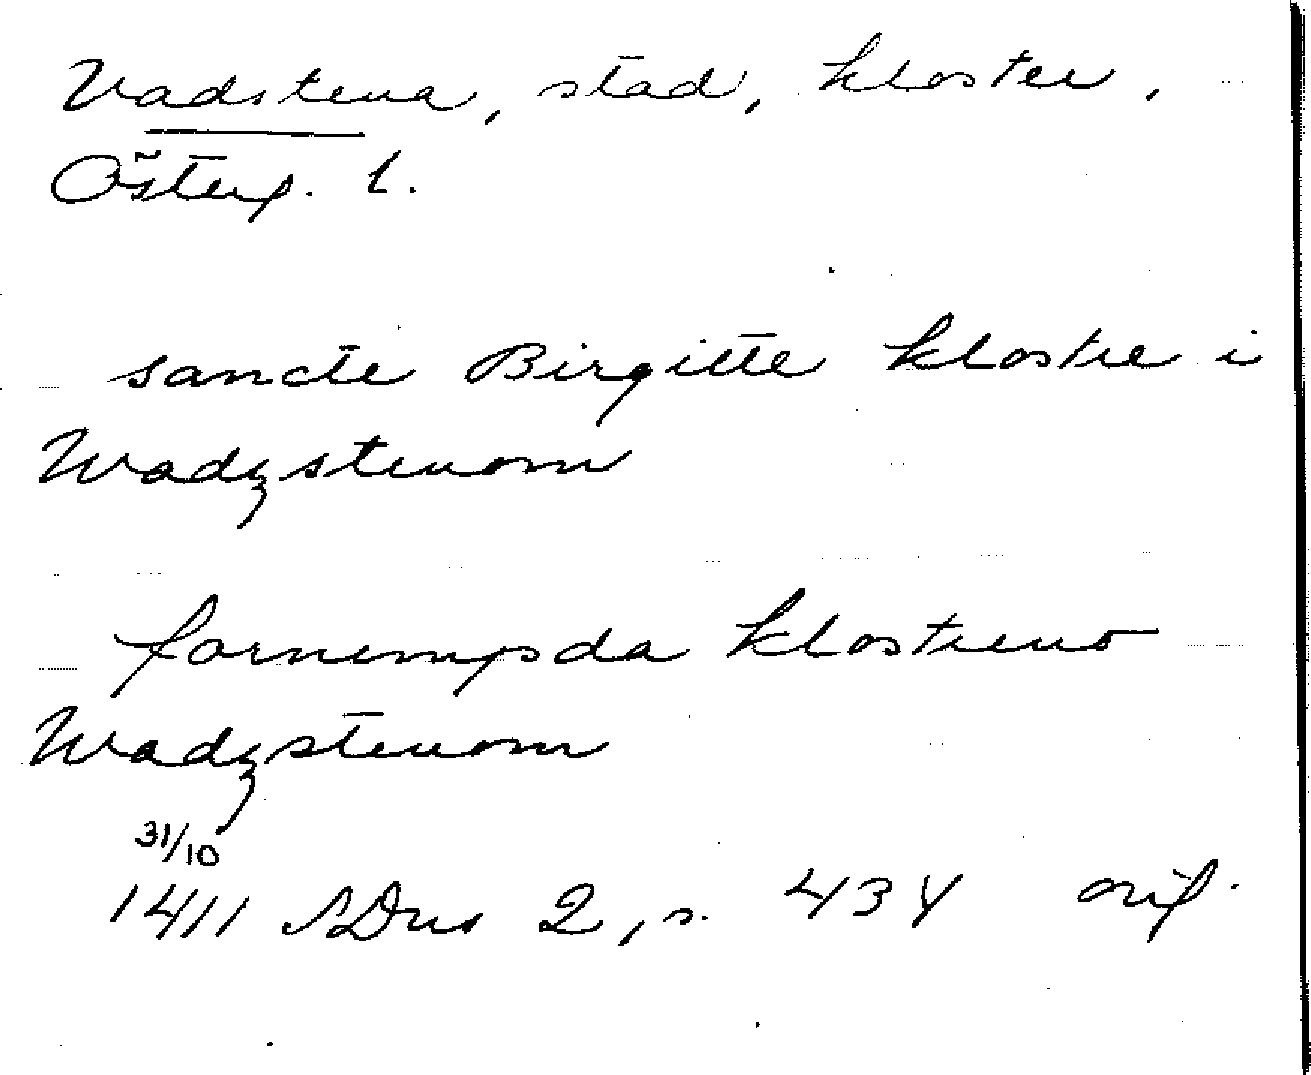 Vadstena, stad, kloster,
Österg. l.
sancte Birgitte klostre i
Wadzstenom
fornempda klostreno
Wadzstenom
31/10
1411 SDns 2, s. 434 orig.